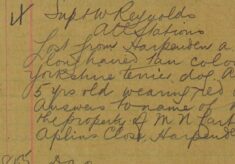 Supt W Reynolds
All Stations
Lost from Harpenden a
long haired tan colo
Yorkshire terrier dog, A
5 yrs old wearing red
answers to name of
the property of M N
Aplins Close, Harpende